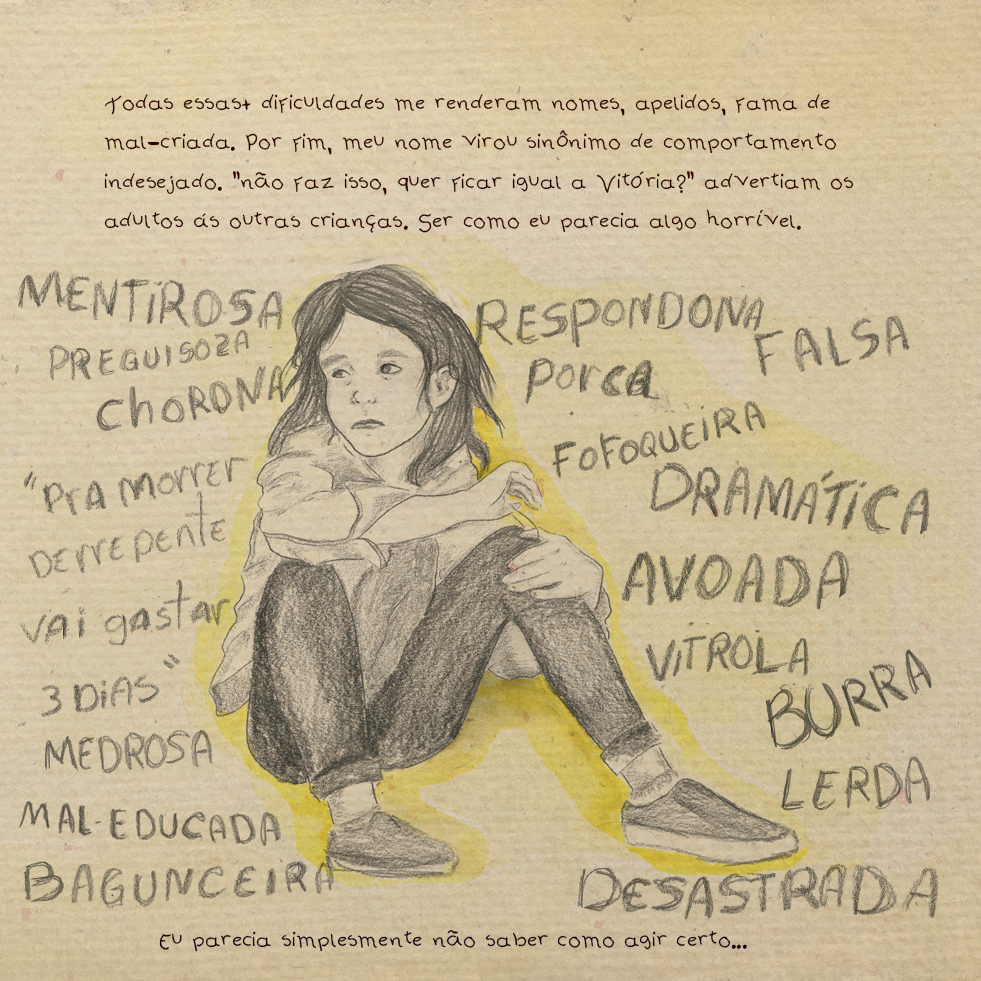 Todas essas+ dificuldades me renderam nomes, apelidos, fama de
mal-criada. Por fim, meu nome virou sinônimo de comportamento
indesejado. "não faz isso, quer ficar igual a Vitória?" advertiam os
adultos ás outras crianças. Ser como eu parecia algo horrível.
MENTIROSA
PREGUISOZA
CHORONA
"PRA MORRER
DERREPENTE
VAI gastar
3 DIAS"
MEDROSA
MAL-EDUCADA
BAGUNCEIRA
RESPONDONA
FALSA
Porca
FOFOQUEIRA
DRAMÁTICA
AVOADA
VITROLA
BURRA
LERDA
DESASTRADA
Eu parecia simplesmente não saber como agir certo...